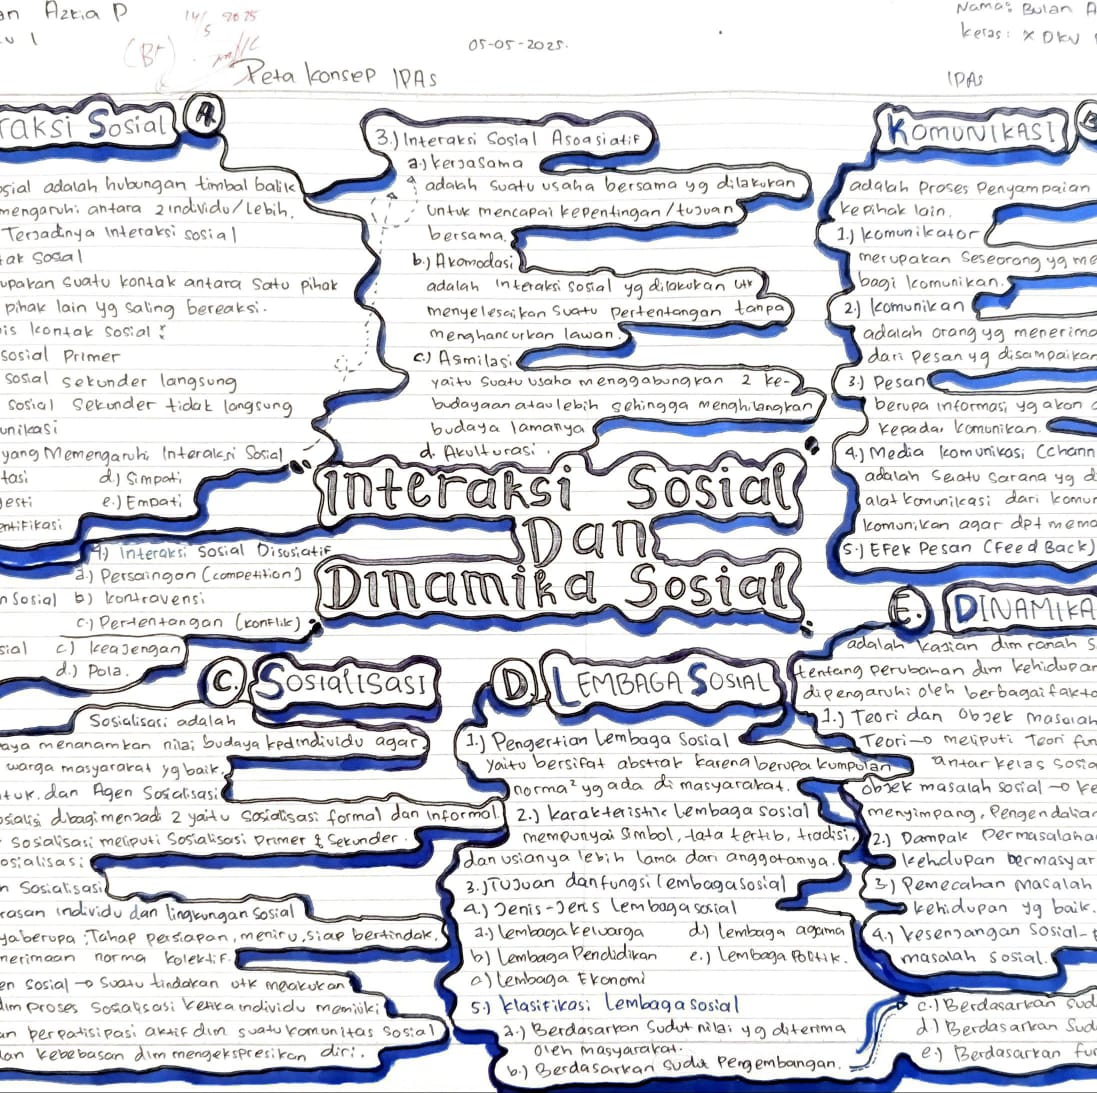 an Azkia P
14/5 2025
(B+)
05-05-2025.
Peta Konsep IPAs
Nama: Bulan A
Kelas: X DKV
IPAs
raksi Sosial A.
osial adalah hubungan timbal balik
mengaruhi antara 2 individu/lebih.
Terjadinya Interaksi sosial
tak Sosial
upakan suatu kontak antara satu pihak
pihak lain yg saling bereaksi.
is kontak sosial:
sosial Primer
sosial sekunder langsung
sosial sekunder tidak langsung
unikasi
yang Memengaruhi Interaksi Sosial
tasi d.) Simpati
gesti e.) Empati
entifikasi
3.) Interaksi Sosial Asosiatif
a.) Kerjasama
adalah suatu usaha bersama yg dilakukan
untuk mencapai kepentingan/tujuan
bersama.
b.) Akomodasi
adalah interaksi sosial yg dilakukan utk
menyelesaikan suatu pertentangan tanpa
menghancurkan lawan.
c.) Asmilasi
yaitu suatu usaha menggabungkan 2 ke-
budayaan atau lebih sehingga menghilangkan
budaya lamanya
d. Akulturasi.
4.) Interaksi Sosial Disosiatif
a.) Persaingan (competition)
nSosial b) kontravensi
c.) Pertentangan (konflik)
sial c) Keajengan
d.) Pola.
Interaksi Sosial
Dan
Dinamika Sosial
KOMUNIKASI B
adalah Proses Penyampaian
kepihak lain.
1.) Komunikator
merupakan seseorang yg me
bagi komunikan.
2.) Komunikan
adalah orang yg menerima
dari Pesan yg disampaikan
3.) Pesan
berupa informasi yg akan
kepada komunikan.
4.) Media Komunikasi (chann
adalah suatu sarana yg d
alat komunikasi dari komun
komunikan agar dpt mema
5.) Efek Pesan (Feed Back)
C. SOSIALISASI
Sosialisasi adalah
aya menanamkan nilai budaya kpd individu agar
warga masyarakat yg baik.
ntuk, dan Agen Sosialisasi
osialisi dibagi menjadi 2 yaitu sosialisasi formal dan informal
Sosalisasi meliputi Sosialisasi Primer & Sekunder.
osialisasi:
n Sosialisasi
rasan individu dan lingkungan sosial
ya berupa; Tahap persiapan, meniru, siap bertindak.
nerimaan norma kolektif.
en sosial → Suatu tindakan utk melakukan
dlm proses Sosialisasi ketika individu memiliki
an berpatisipasi aktif dlm suatu komunitas sosial
dan kebebasan dlm mengekspresikan diri.
D. LEMBAGA SOSIAL
1.) Pengertian Lembaga Sosial
yaitu bersifat abstrak karena berupa kumpulan
norma² yg ada di masyarakat.
2.) Karakteristic Lembaga sosial
mempunyai simbol, tata tertib, tradisi,
dan usianya lebih lama dari anggotanya.
3.) Tujuan dan fungsi lembaga sosial
4.) Jenis-Jenis Lembaga sosial
a.) lembaga keluarga d.) lembaga agama
b) Lembaga Pendidikan e.) Lembaga Politik.
c) lembaga Ekonomi
5.) Klasifikasi Lembaga sosial
a.) Berdasarkan sudut nilai yg diterima
oleh masyarakat.
b.) Berdasarkan sudut Pengembangan.
E. DINAMIKA
adalah kajian dlm ranah s
tentang perubahan dlm kehidupan
dipengaruhi oleh berbagai fakto
1.) Teori dan objek masalah
Teori → meliputi Teori fun
antar kelas sosia
objek masalah sosial → ke
menyimpang, Pengendalian
2.) Dampak Permasalahan
kehdupan bermasyar
3) Pemecahan Masalah
kehidupan yg baik.
4.) Kesenjangan Sosial-
masalah sosial.
c.) Berdasarkan sud
d.) Berdasarkan Sud
e.) Berdasarkan fun